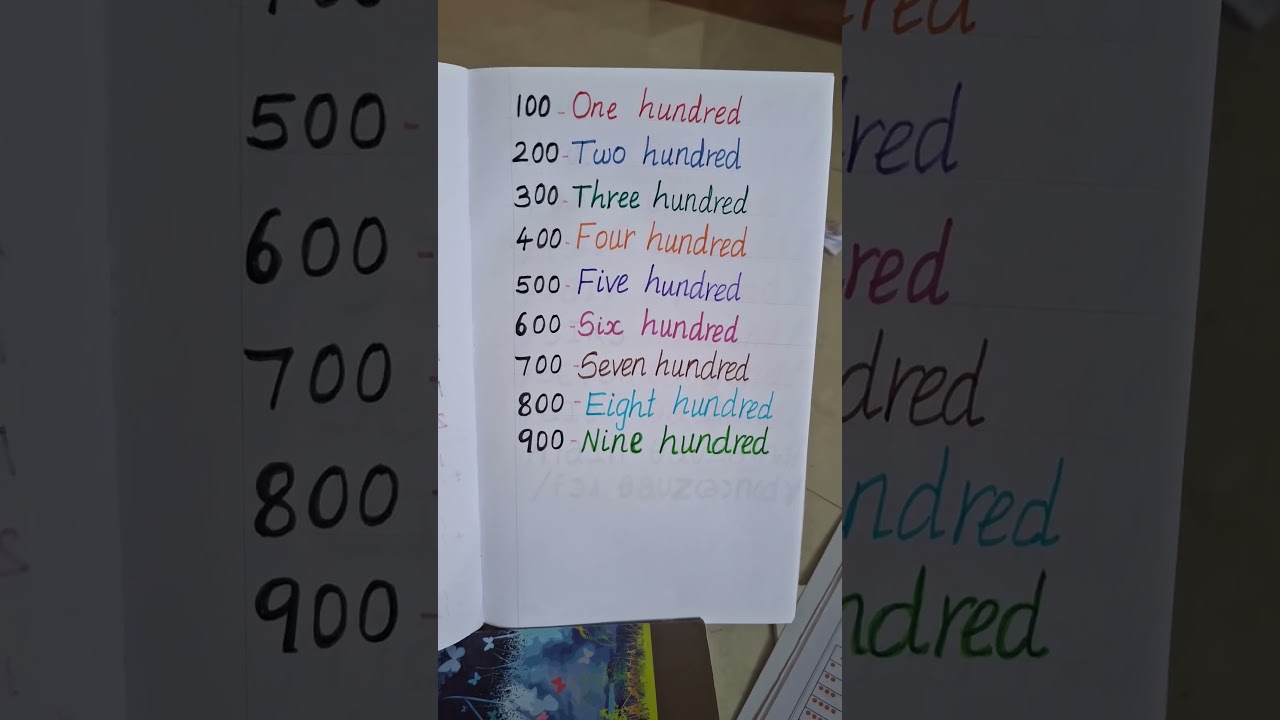 100 - One hundred
200 - Two hundred
300 - Three hundred
400 - Four hundred
500 - Five hundred
600 - Six hundred
700 - Seven hundred
800 - Eight hundred
900 - Nine hundred